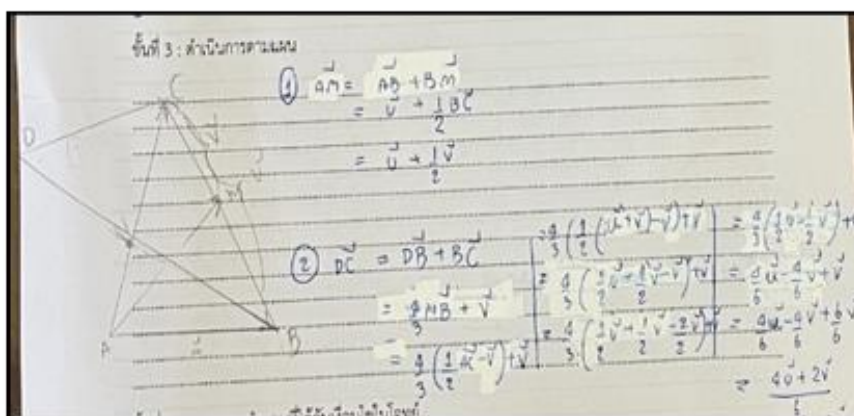 ขั้นที่ 3 : ดำเนินการตามแผน
C
D
M
A
B
① AM⃗ = AB⃗ + BM⃗
= u⃗ + 1/2 BC⃗
= u⃗ + 1/2 v⃗
② DC⃗ = DB⃗ + BC⃗
= 4/3 NB⃗ + v⃗
= 4/3 (1/2 u⃗ - v⃗) + v⃗
= 4/3 (1/2 (u⃗ + v⃗) - v⃗) + v⃗
= 4/3 (1/2 u⃗ + 1/2 v⃗ - v⃗) + v⃗
= 4/3 (1/2 v⃗ + 1/2 v⃗ - 2/2 v⃗) + v⃗
= 4/3 (1/2 u⃗ - 1/2 v⃗) +
= 4/6 u⃗ - 4/6 v⃗ + v⃗
= 4/6 u⃗ - 4/6 v⃗ + 6/6 v
= 4u⃗ + 2v⃗